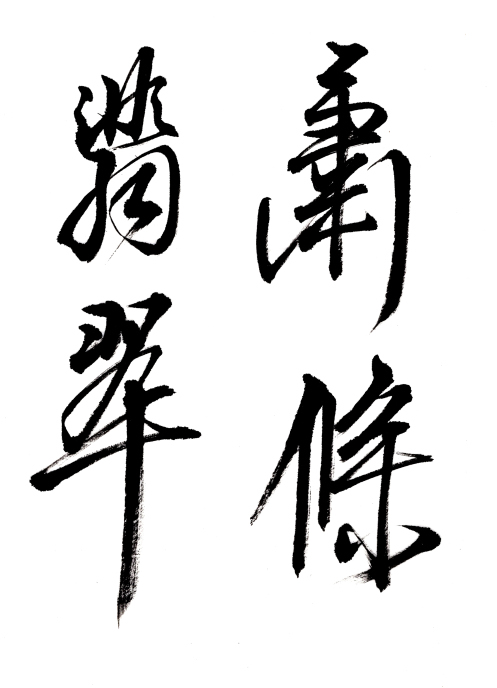 蕭條
翡翠